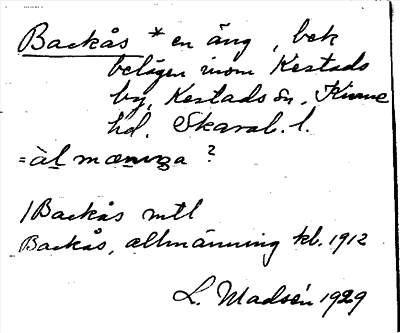 Backås * en äng, bek
belägen inom Kestads
by, Kestads sn, Kinne
hd. Skarab. l.
= àl mænıŋa ?
/Backås mtl
Backås, allmänning kb. 1912
L. Madsén 1929